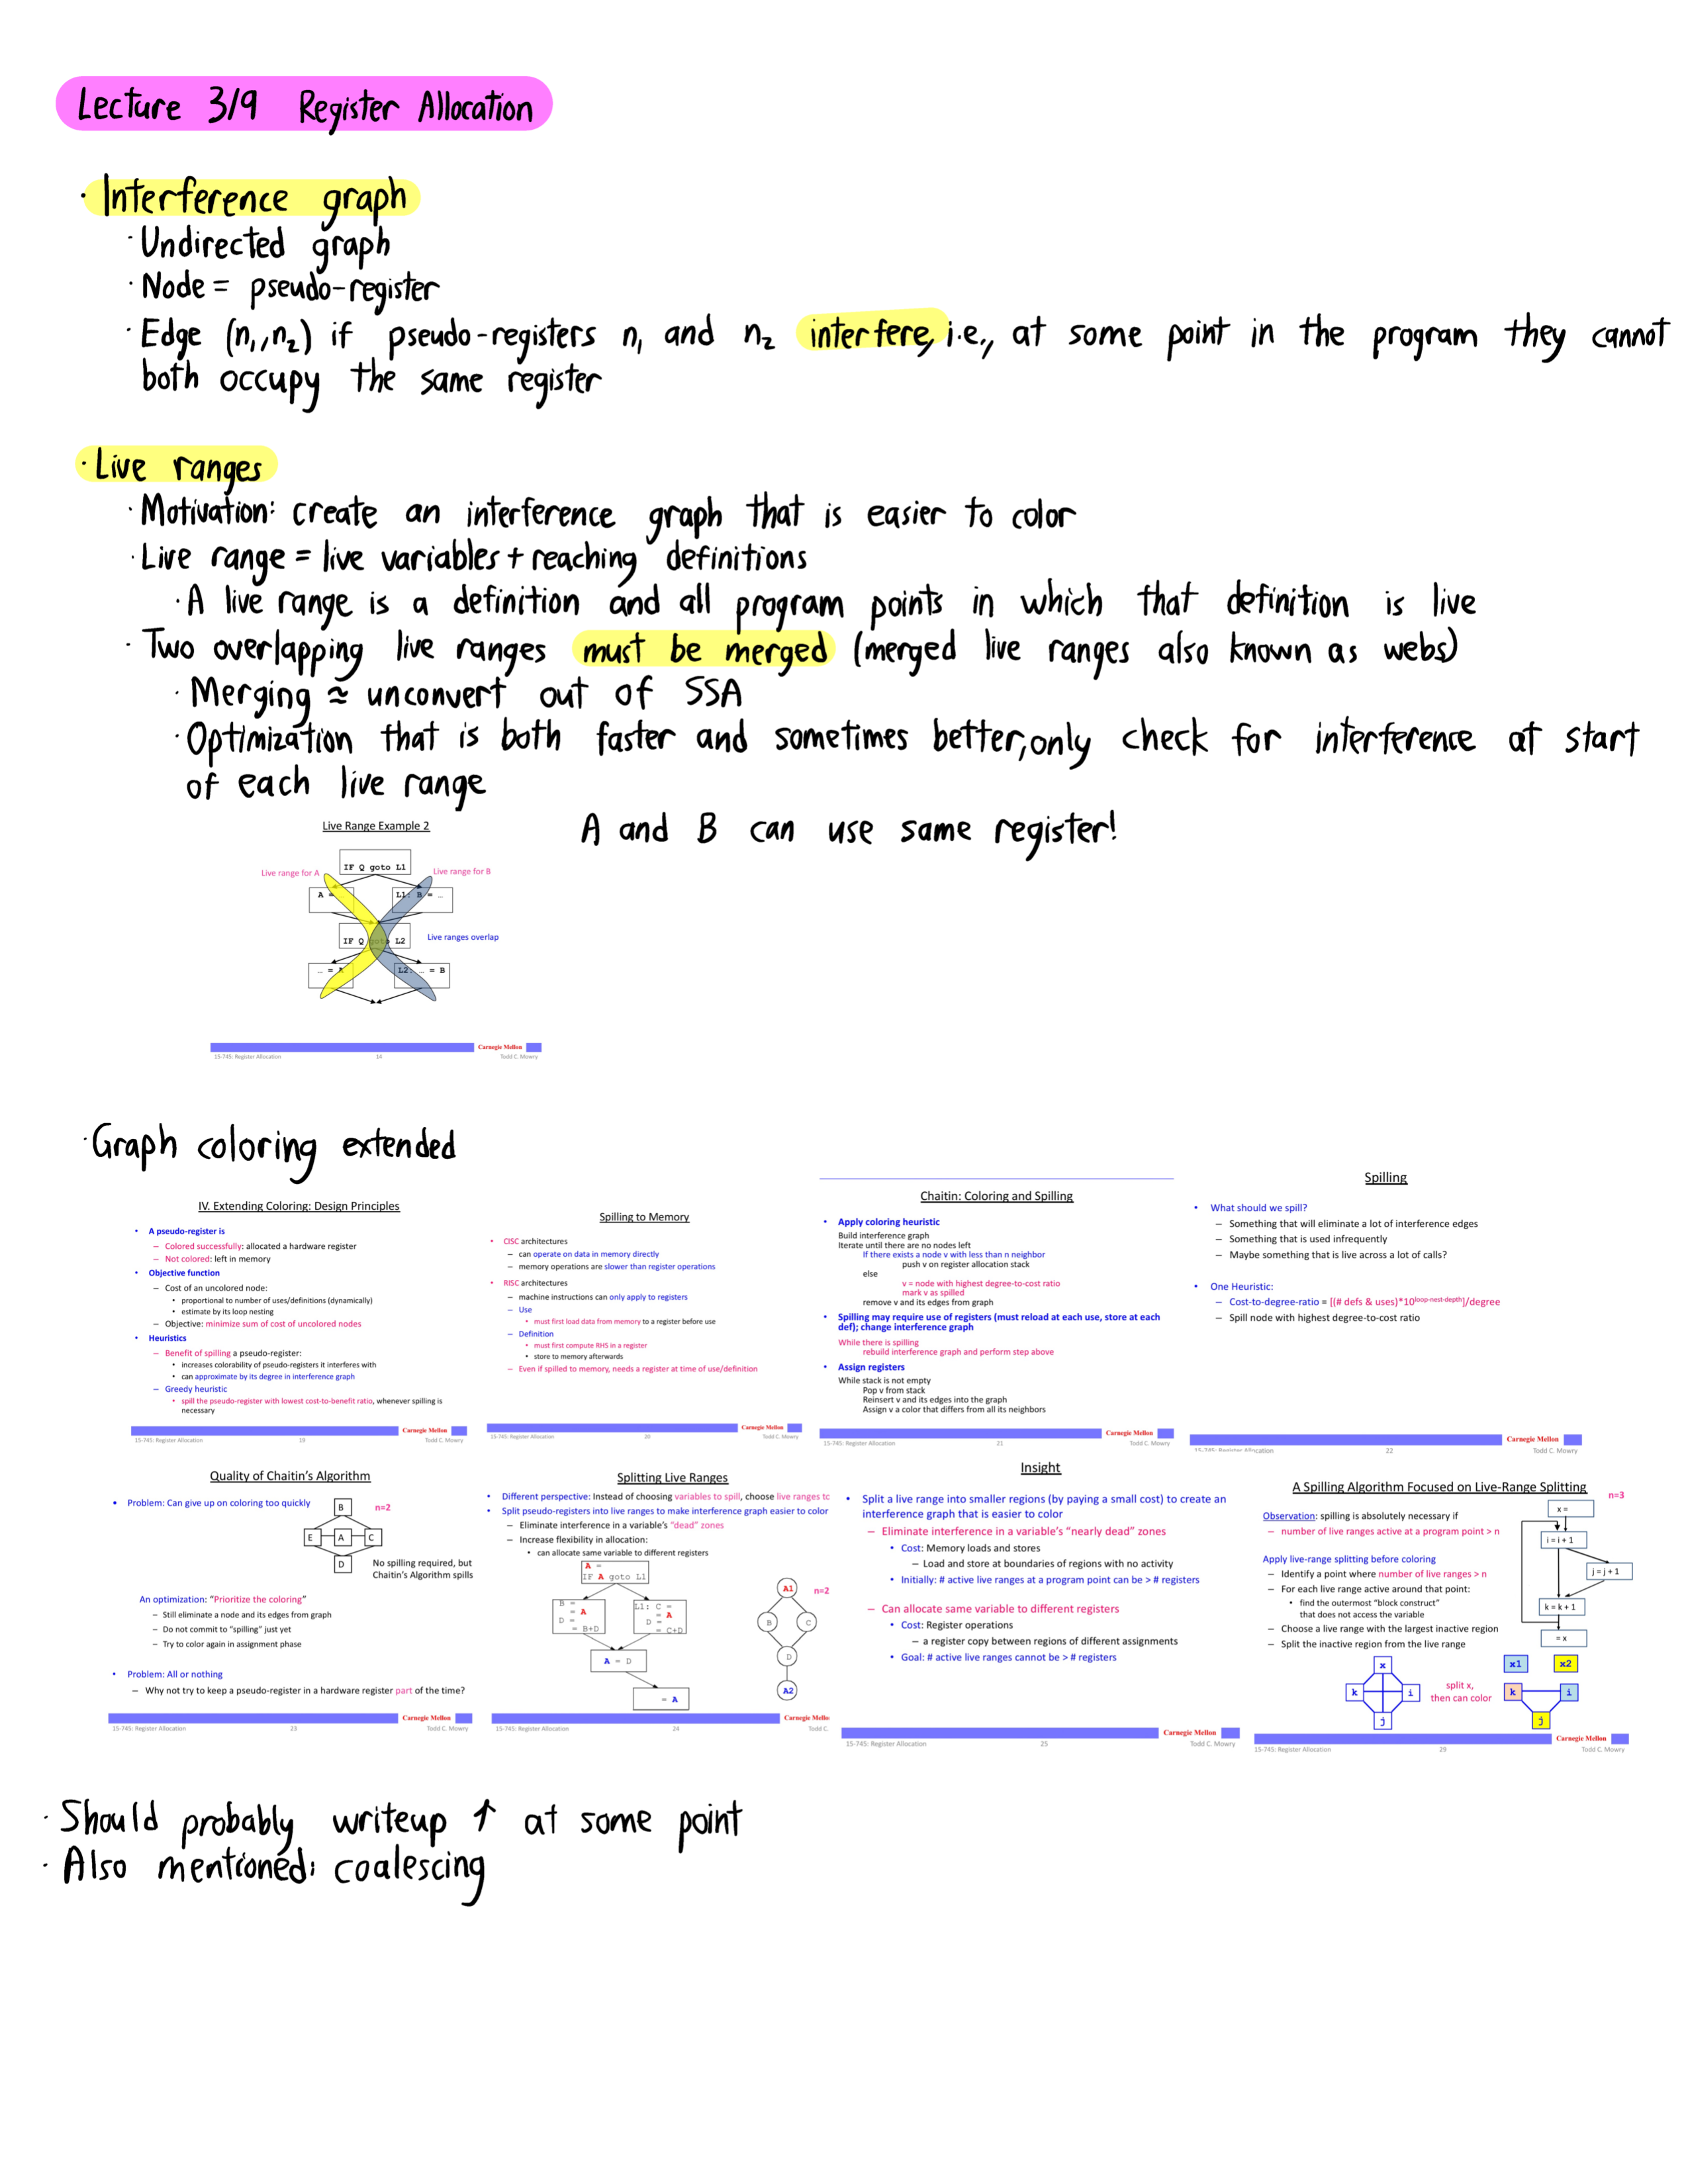 Lecture 3/9 Register Allocation
· Interference graph
· Undirected graph
· Node = pseudo-register
· Edge (n₁,n₂) if pseudo-registers n₁ and n₂ interfere, i.e., at some point in the program they cannot
both occupy the same register
· Live ranges
· Motivation: create an interference graph that is easier to color
· Live range = live variables + reaching definitions
· A live range is a definition and all program points in which that definition is live
· Two overlapping live ranges must be merged (merged live ranges also known as webs)
· Merging ≈ unconvert out of SSA
· Optimization that is both faster and sometimes better, only check for interference at start
of each live range
A and B can use same register!
Live Range Example 2
IF Q goto L1
Live range for A
Live range for B
A =
L1: B = …
IF Q goto L2
Live ranges overlap
… = A
L2: … = B
Carnegie Mellon
15-745: Register Allocation 14 Todd C. Mowry
· Graph coloring extended
IV. Extending Coloring: Design Principles
• A pseudo-register is
– Colored successfully: allocated a hardware register
– Not colored: left in memory
• Objective function
– Cost of an uncolored node:
• proportional to number of uses/definitions (dynamically)
• estimate by its loop nesting
– Objective: minimize sum of cost of uncolored nodes
• Heuristics
– Benefit of spilling a pseudo-register:
• increases colorability of pseudo-registers it interferes with
• can approximate by its degree in interference graph
– Greedy heuristic
• spill the pseudo-register with lowest cost-to-benefit ratio, whenever spilling is
necessary
Carnegie Mellon
15-745: Register Allocation 19 Todd C. Mowry
Spilling to Memory
• CISC architectures
– can operate on data in memory directly
– memory operations are slower than register operations
• RISC architectures
– machine instructions can only apply to registers
– Use
• must first load data from memory to a register before use
– Definition
• must first compute RHS in a register
• store to memory afterwards
– Even if spilled to memory, needs a register at time of use/definition
Carnegie Mellon
15-745: Register Allocation 20 Todd C. Mowry
Chaitin: Coloring and Spilling
• Apply coloring heuristic
Build interference graph
Iterate until there are no nodes left
If there exists a node v with less than n neighbor
push v on register allocation stack
else
v = node with highest degree-to-cost ratio
mark v as spilled
remove v and its edges from graph
• Spilling may require use of registers (must reload at each use, store at each
def); change interference graph
While there is spilling
rebuild interference graph and perform step above
• Assign registers
While stack is not empty
Pop v from stack
Reinsert v and its edges into the graph
Assign v a color that differs from all its neighbors
Carnegie Mellon
15-745: Register Allocation 21 Todd C. Mowry
Spilling
• What should we spill?
– Something that will eliminate a lot of interference edges
– Something that is used infrequently
– Maybe something that is live across a lot of calls?
• One Heuristic:
– Cost-to-degree-ratio = [(# defs & uses)*10^loop-nest-depth]/degree
– Spill node with highest degree-to-cost ratio
Carnegie Mellon
15-745: Register Allocation 22 Todd C. Mowry
Quality of Chaitin's Algorithm
• Problem: Can give up on coloring too quickly
B
n=2
E A C
D
No spilling required, but
Chaitin's Algorithm spills
An optimization: "Prioritize the coloring"
– Still eliminate a node and its edges from graph
– Do not commit to "spilling" just yet
– Try to color again in assignment phase
• Problem: All or nothing
– Why not try to keep a pseudo-register in a hardware register part of the time?
Carnegie Mellon
15-745: Register Allocation 23 Todd C. Mowry
Splitting Live Ranges
• Different perspective: Instead of choosing variables to spill, choose live ranges to
• Split pseudo-registers into live ranges to make interference graph easier to color
– Eliminate interference in a variable's "dead" zones
– Increase flexibility in allocation:
• can allocate same variable to different registers
A =
IF A goto L1
B =
= A
D =
= B+D
L1: C =
= A
D =
= C+D
A = D
= A
A1
n=2
B C
D
A2
Carnegie Mello
15-745: Register Allocation 24 Todd C.
Insight
• Split a live range into smaller regions (by paying a small cost) to create an
interference graph that is easier to color
– Eliminate interference in a variable's "nearly dead" zones
• Cost: Memory loads and stores
– Load and store at boundaries of regions with no activity
• Initially: # active live ranges at a program point can be > # registers
– Can allocate same variable to different registers
• Cost: Register operations
– a register copy between regions of different assignments
• Goal: # active live ranges cannot be > # registers
Carnegie Mellon
15-745: Register Allocation 25 Todd C. Mowry
A Spilling Algorithm Focused on Live-Range Splitting
n=3
Observation: spilling is absolutely necessary if
– number of live ranges active at a program point > n
Apply live-range splitting before coloring
– Identify a point where number of live ranges > n
– For each live range active around that point:
• find the outermost "block construct"
that does not access the variable
– Choose a live range with the largest inactive region
– Split the inactive region from the live range
x =
i = i + 1
j = j + 1
k = k + 1
= x
x
k i
j
split x,
then can color
x1 x2
k i
j
Carnegie Mellon
15-745: Register Allocation 29 Todd C. Mowry
· Should probably writeup ↑ at some point
· Also mentioned: coalescing